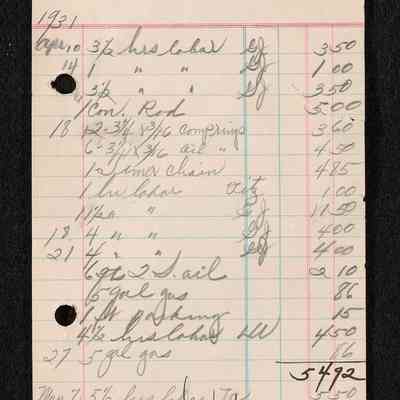 1931
Apr 10 3½ hrs labor GJ 3 50
14 1 " " GJ 1 00
3½ " " GJ 3 50
1 Con. Rod 5 00
18 12-3¾ x 3/16 comprings 3 60
6-3¾ x 3/16 oil " 4 50
1-timer chain 4 85
1 hr labor Fitz 1 00
11½ " " GJ 11 50
18 4 " " GJ 4 00
21 4 " " GJ 4 00
6 qts 2 S. oil 2 10
5 gal gas 86
1 ft packing 15
4½ hrs labor 4 50
27 5 gal gas 86
54 92
May 7 5½ hrs labor 5 50